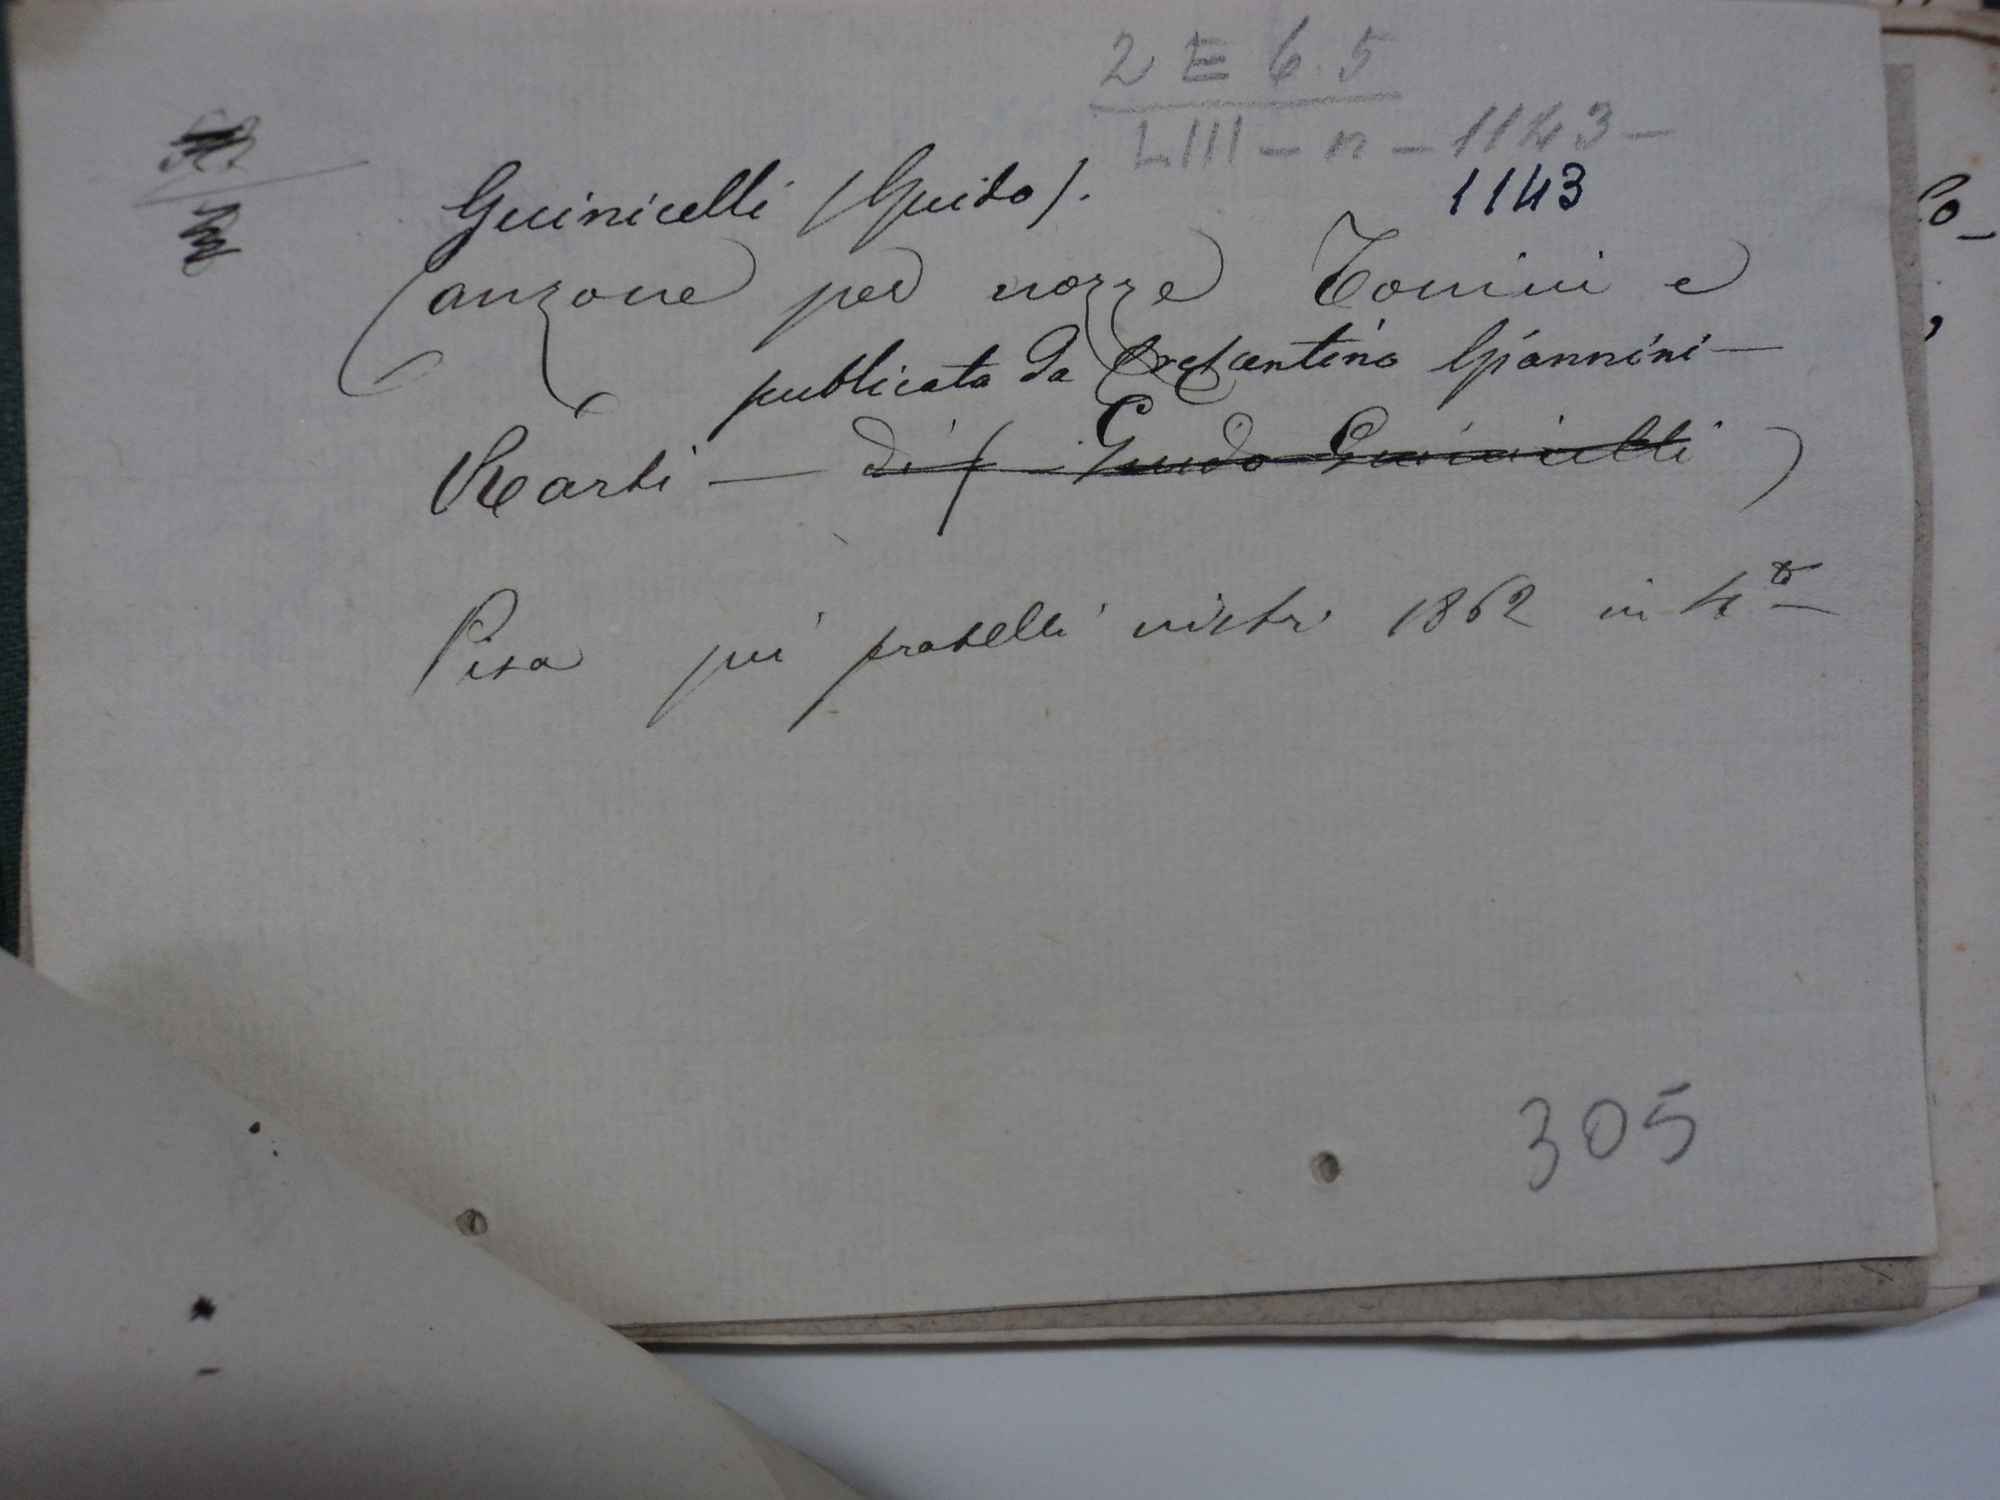 2 E 6.5
LIII - n - 1143 -
Guinicelli (Guido).
1143
Canzone per nozze Tomini e
publicata da Crescentino Giannini -
Nardi - di Guido Guinicelli
Pisa pei fratelli nistri 1862 in 4º
305